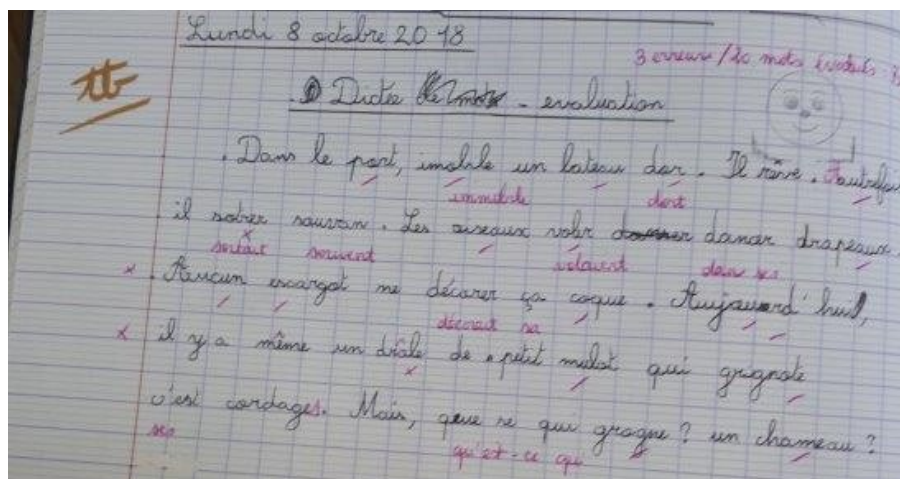 Lundi 8 octobre 2018
3 erreurs / 20 mots évalués
TB
Dictée - evaluation
. Dans le port, imobile un bateau dor. Il rêve. Autrefois
immobile dort
il sotrer souvan. Les oiseaux volir danar drapeaux.
sortait souvent volaient dans ses
x . Aucun escargot ne décorer ça coque. Aujourd'hui,
décorait sa
x il y a même un drôle de petit mulot qui grignote
c'est cordages. Mais, que se qui grogne ? un chameau ?
ses qu'est-ce qui